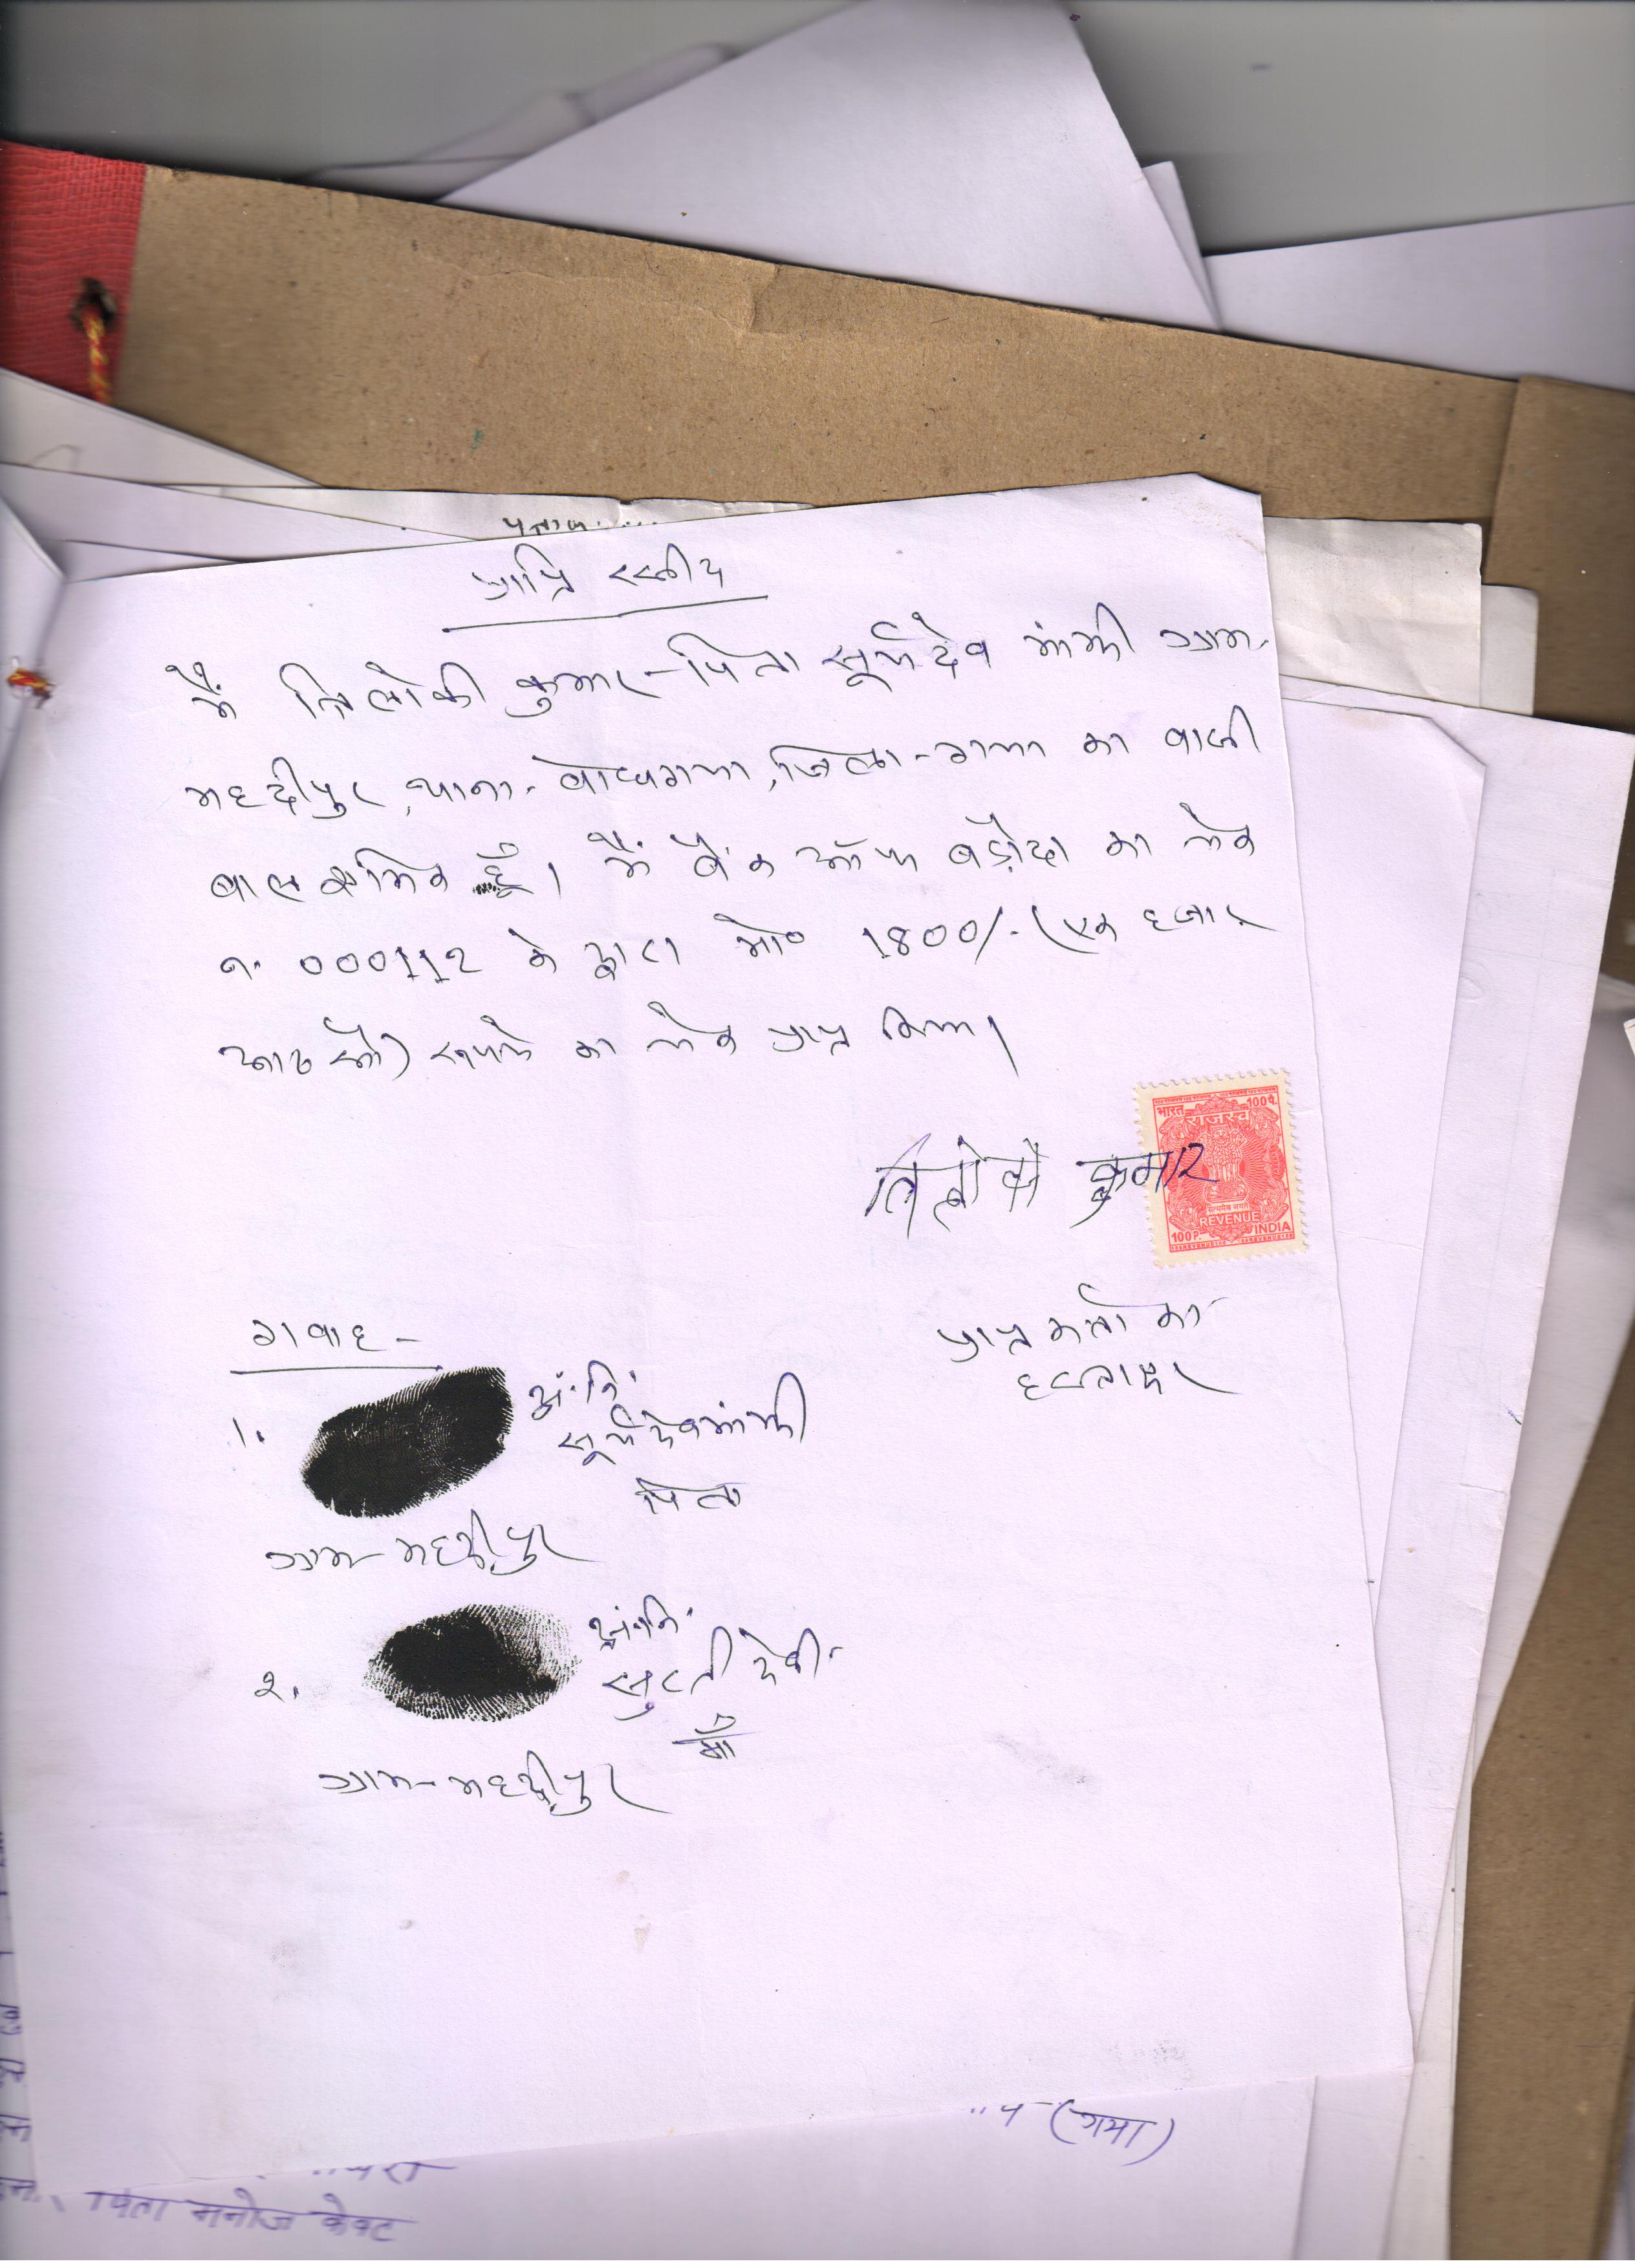 प्राप्ति रसीद
मैं त्रिलोकी कुमार-पिता सूर्यदेव मांझी ग्राम-
महदीपुर, थाना-बोधगया, जिला-गया का बासी
बाल श्रमिक हूँ। मैं बैंक ऑफ बड़ौदा का चेक
न. 000112 के द्वारा मो० 1800/- (एक हजार
आठ सौ) रूपये का चेक प्राप्त किया।
भारत 100 पै.
राजस्व
सत्यमेव जयते
REVENUE
100 P. INDIA
त्रिलोकी कुमार
प्राप्त कर्ता का
हस्ताक्षर
गवाह -
1. अं. नि.
सूर्यदेव मांझी
पिता
ग्राम-महदीपुर
2. अं. नि.
सुरती देवी
माँ
ग्राम-महदीपुर
(गया)
पिता मनोज केवट